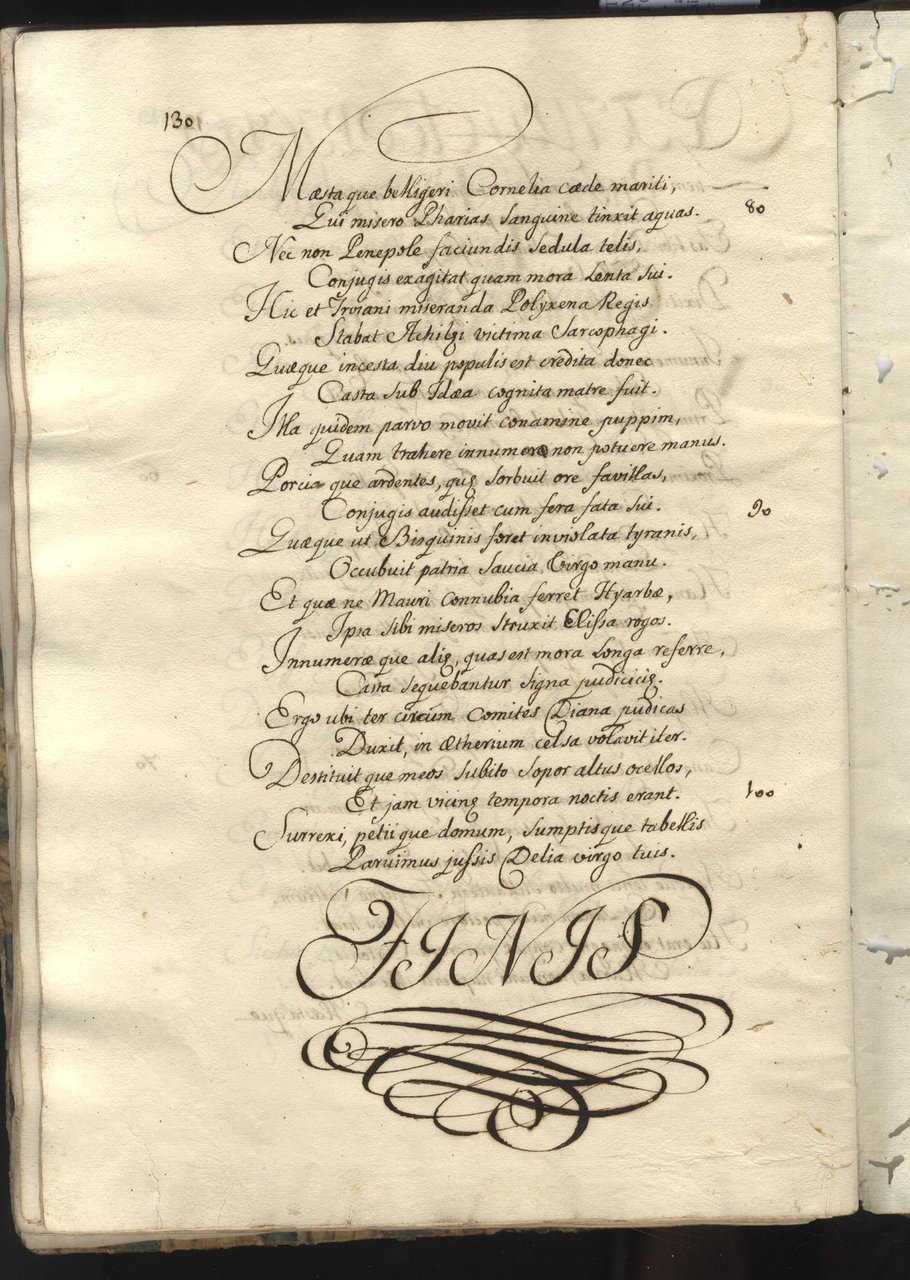 130
Mæstaque belligeri Cornelia cæde mariti,
Qui misero Pharias sanguine tinxit aquas. 80
Nec non Penepole faciundis sedula telis,
Conjugis exagitat quam mora lenta sui.
Hic et Troiani miseranda Polyxena Regis
Stabat Achilęi victima sarcophagi.
Quæque incesta diu populis est credita donec
Casta sub Idæa cognita matre fuit.
Illa quidem parvo movit conamine puppim,
Quam trahere innumeræ non potuere manus.
Porciaque ardentes, quę sorbuit ore favillas,
Conjugis audisset cum fera fata sui. 90
Quæque ut Bisquinis foret inviolata tyranis,
Occubuit patria saucia Virgo manu.
Et quæ ne Mauri connubia ferret Hyarbæ,
Ipsa sibi miseros struxit Elissa rogos.
Innumeræque alię, quas est mora longa referre,
Casta sequebantur signa pudicicię.
Ergo ubi ter circum comites Diana pudicas
Duxit, in ætherium celsa volavit iter.
Destituitque meos subito sopor altus ocellos,
Et jam vicinę tempora noctis erant. 100
Surrexi, petiique domum, sumptisque tabellis
Paruimus jussis Delia virgo tuis.
FINIS